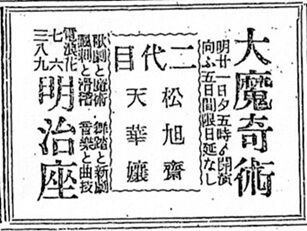 大魔奇術
明廿一日夕五時ゟ開演
向ふ五日間限日延なし
二代目
松旭齋
天華孃
歌劇と魔術・舞踏と新劇
喜劇と滑稽・音樂と曲技
電浪花
七六
三八九
明治座